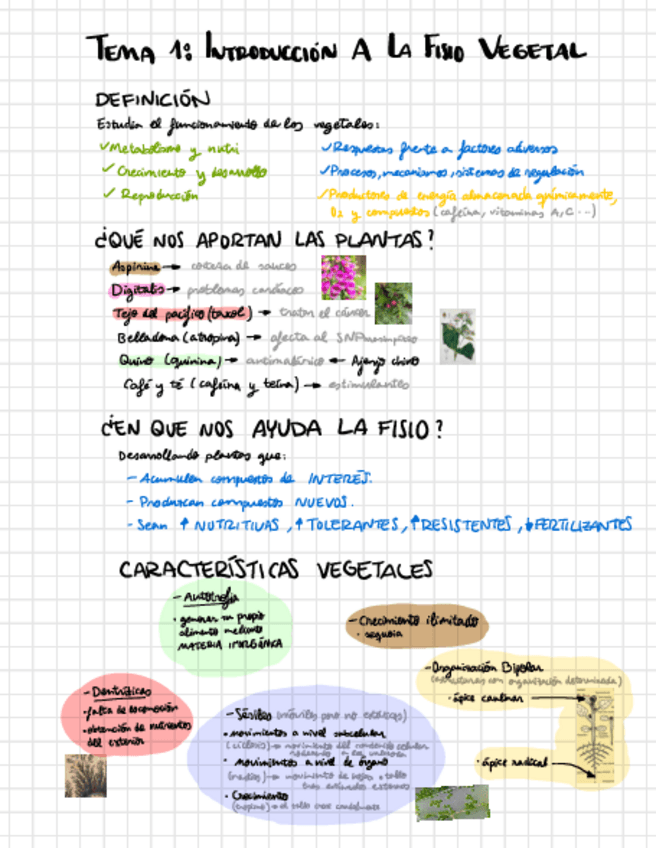 TEMA 1: INTRODUCCIÓN A LA FISIO VEGETAL
DEFINICIÓN
Estudia el funcionamiento de los vegetales:
✓Metabolismo y nutri
✓Crecimiento y desarrollo
✓Reproducción
✓Respuestas frente a factores adversos
✓Procesos, mecanismos, sistemas de regulación
✓Productores de energía almacenada químicamente,
O₂ y compuestos (cafeína, vitaminas A, C...)
¿QUÉ NOS APORTAN LAS PLANTAS?
Aspirina → corteza de sauces
Digitalis → problemas cardíacos
Tejo del pacífico (taxol) → tratar el cáncer
Belladona (atropina) → afecta al SNP
Quino (quinina) → antimalárico ← Ajenjo chino
Café y té (cafeína y teína) → estimulantes
¿EN QUE NOS AYUDA LA FISIO?
Desarrollando plantas que:
- Acumulen compuestos de INTERÉS.
- Produzcan compuestos NUEVOS.
- Sean ↑ NUTRITIVAS, ↑ TOLERANTES, ↑ RESISTENTES, ↓ FERTILIZANTES
CARACTERÍSTICAS VEGETALES
- Autotrofia
• generan su propio
alimento mediante
MATERIA INORGÁNICA
- Crecimiento ilimitado
• sequoia
- Organización Bipolar
(estructuras con organización determinada)
• ápice caulinar
• ápice radical
- Dentríticas
• falta de locomoción
• obtención de nutrientes
del exterior
- Sésiles (móviles pero no estáticas)
• movimientos a nivel subcelular
(ciclosis) → movimiento del contenido celular
• movimientos a nivel de órgano
(nastias) → movimiento de hojas o tallo
• Crecimiento